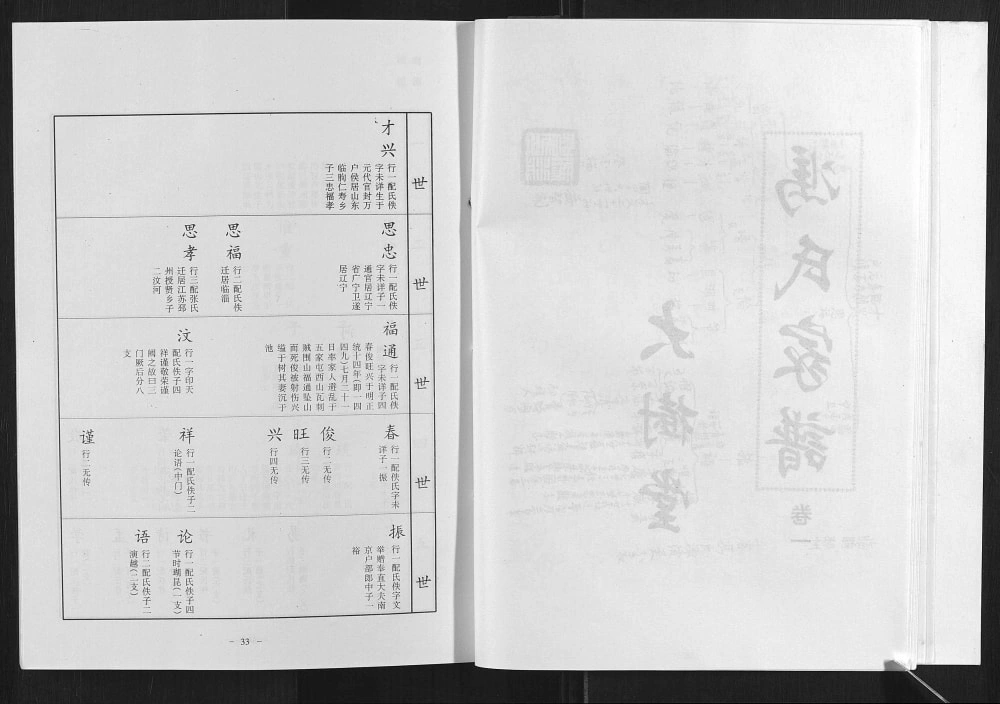 世
才兴
行一配氏佚
字未详生于
元代官封万
户侯居山东
临朐仁寿乡
子三忠福孝
世
思忠
行一配氏佚
字未详子一
通官居辽宁
省广宁卫遂
居辽宁
思福
行二配氏佚
迁居临淄
思孝
行三配张氏
迁居江苏邳
州授贤乡子
二汶河
世
福通
行一配氏佚
字未详子四
春俊旺兴于明正
统十四年(即一四
四九)七月二十一
日率家人避乱于
五家屯西山瓦刺
贼围山福通坠山
而死俊被射伤兴
缢于树其妻沉于
池
汶
行一字印天
配氏佚子四
祥谨敬荣谨
阙之故曰三
门厥后分八
支
世
春
行一配佚氏字未
详子一振
俊
行二无传
旺
行三无传
兴
行四无传
祥
行一配氏佚子二
论语(中门)
谨
行二无传
世
振
行一配氏佚字文
举赠奉直大夫南
京户部郎中子一
裕
论
行一配氏佚子四
节时瑚昆(一支)
语
行二配氏佚子二
演越(二支)
- 33 -
冯氏家谱
卷一
大树堂